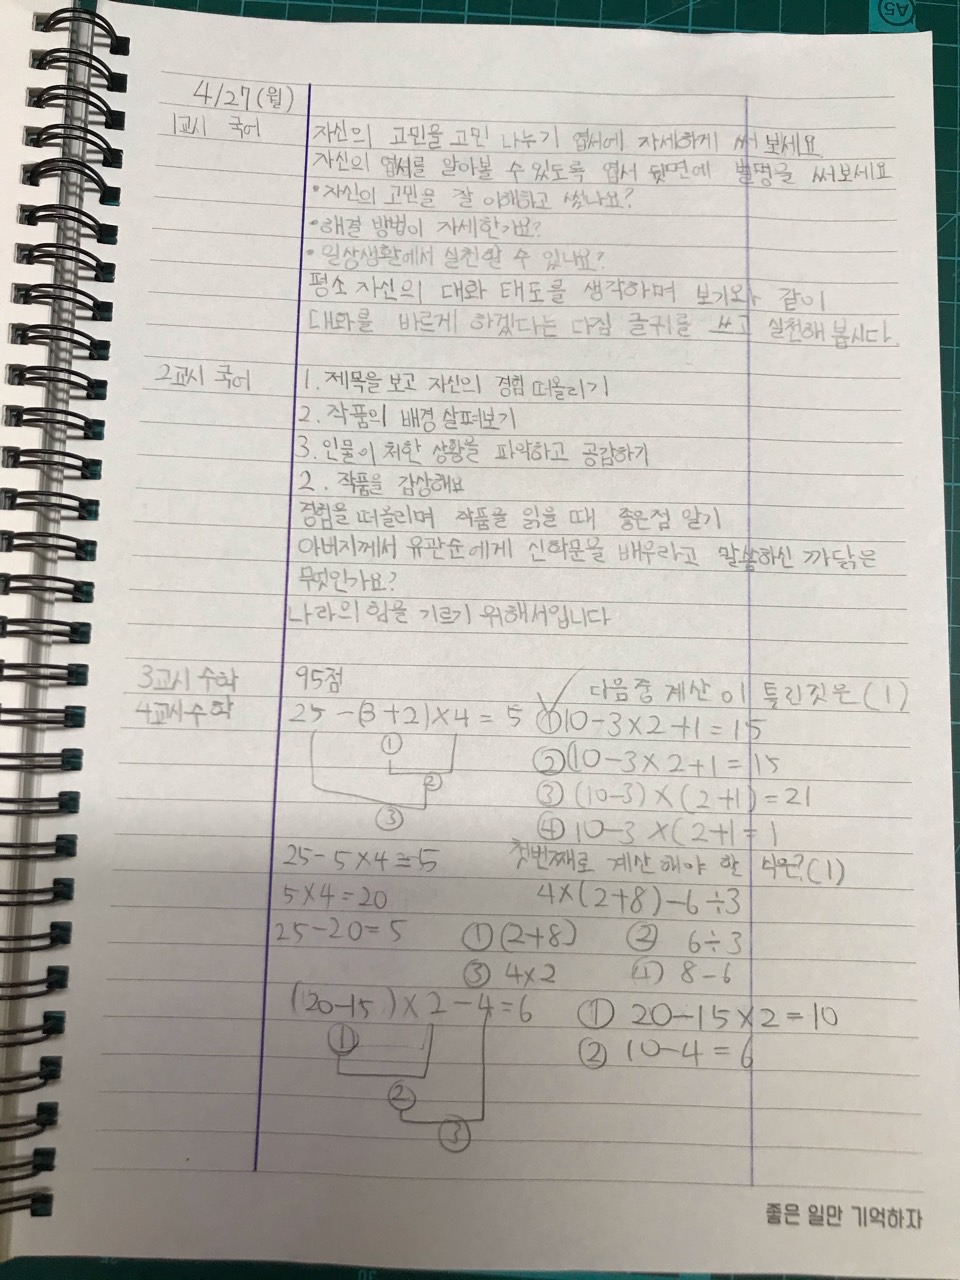 4/27(월)
1교시 국어 자신의 고민을 고민 나누기 엽서에 자세하게 써 보세요.
자신의 엽서를 알아볼 수 있도록 엽서 뒷면에 별명을 써보세요
•자신의 고민을 잘 이해하고 썼나요?
•해결 방법이 자세한가요?
•일상생활에서 실천할 수 있나요?
평소 자신의 대화 태도를 생각하며 보기와 같이
대화를 바르게 하겠다는 다짐 글귀를 쓰고 실천해 봅시다.
2교시 국어 1. 제목을 보고 자신의 경험 떠올리기
2. 작품의 배경 살펴보기
3. 인물이 처한 상황을 파악하고 공감하기
2. 작품을 감상해요
경험을 떠올리며 작품을 읽을 때 좋은점 알기
아버지께서 유관순에게 신학문을 배우라고 말씀하신 까닭은
무엇인가요?
나라의 힘을 기르기 위해서입니다
3교시 수학 95점
다음중 계산이 틀린것은(1)
4교시 수학 25-(3+2)×4=5
①
②
③
25-5×4=5
5×4=20
25-20=5
①10-3×2+1=15
②(10-3×2+1=15
③(10-3)×(2+1)=21
④10-3×(2+1=1
첫번째로 계산해야 할 식은?(1)
4×(2+8)-6÷3
①(2+8) ② 6÷3
③ 4×2 ④ 8-6
(20-15)×2-4=6
①
②
③
① 20-15×2=10
② 10-4=6
좋은 일만 기억하자
A5